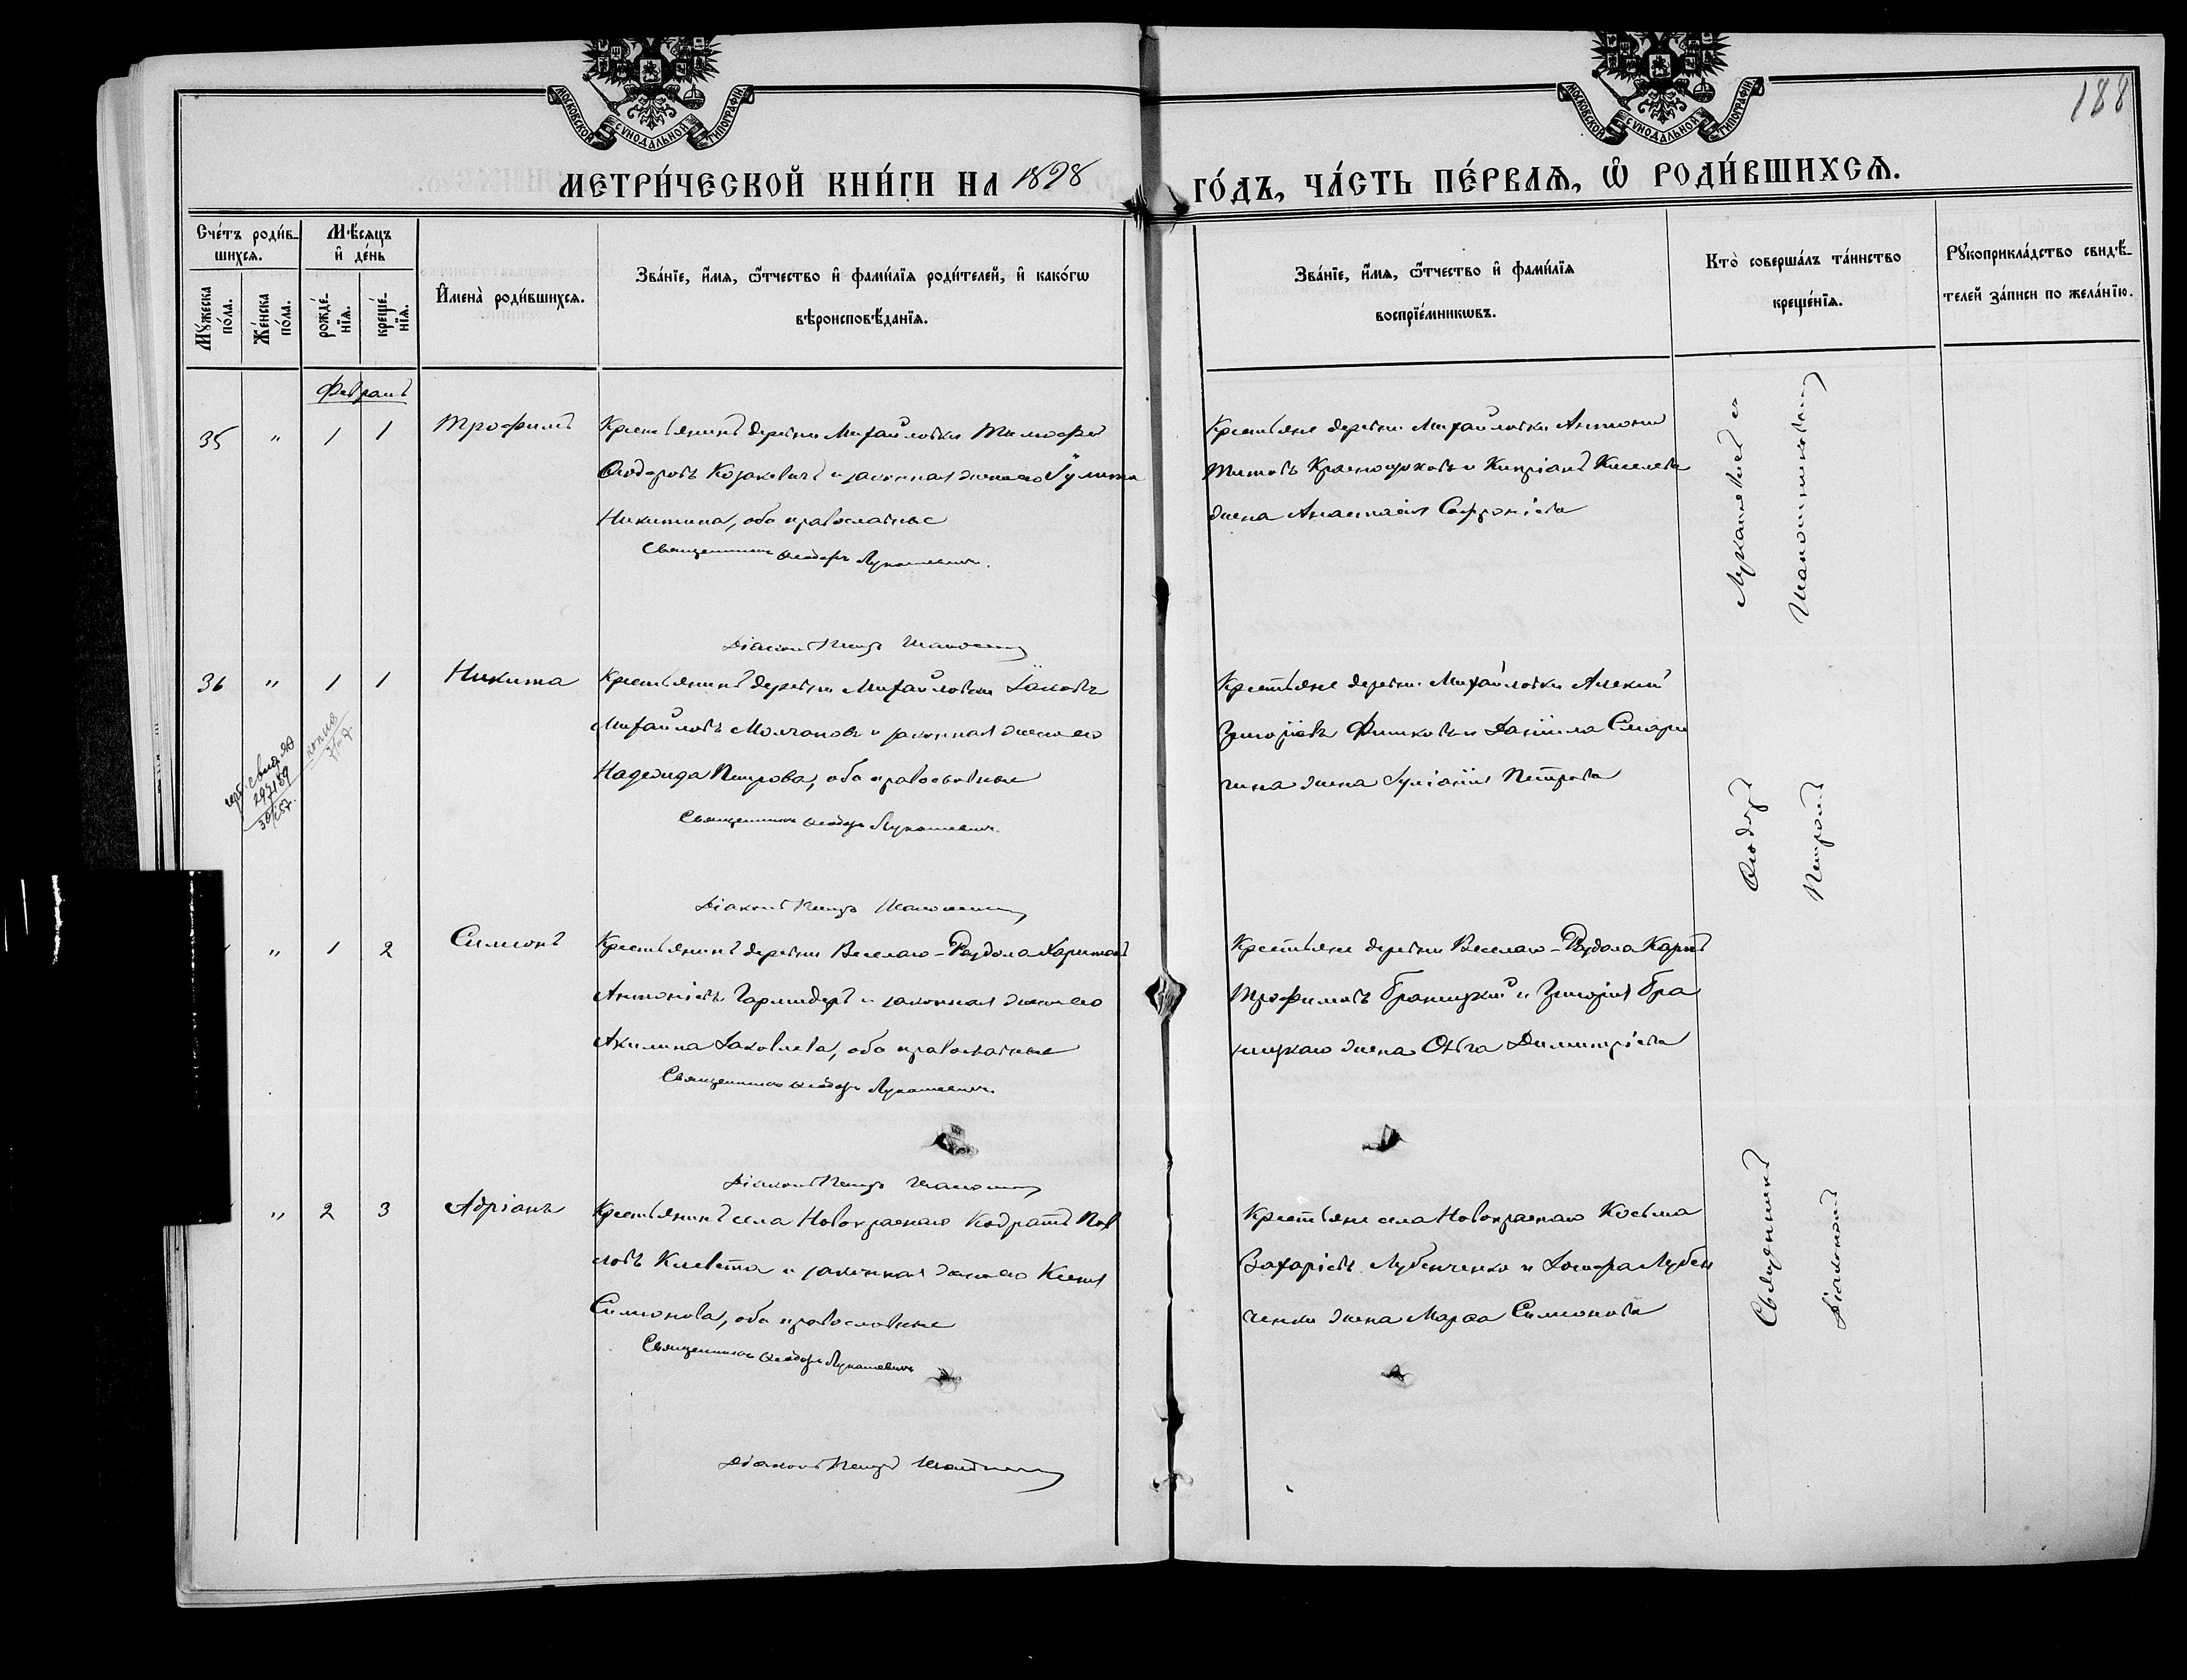 МОСКОВСКОЙ СУНОДАЛЬНОЙ ТИПОГРАФІИ
МОСКОВСКОЙ СУНОДАЛЬНОЙ ТИПОГРАФІИ
188
МЕТРИ́ЧЕСКОЙ КНИ́ГИ НА 1898 ГО́ДЪ, ЧА́СТЬ ПЕ́РВАЯ, Ѿ РОДИ́ВШИХСЯ.
Сче́тъ роди́в-
шихся.
Му́жеска по́ла.
Же́нска по́ла.
Мѣ́сяцъ и де́нь
рожде́-
нїя.
креще́-
нїя.
И҆мена̀ роди́вшихся.
Зва́нїе, и҆́мя, ѻ҆́тчество и҆ фами́лїя роди́телей, и҆ како́гѡ
вѣроисповѣ́данїя.
Зва́нїе, и҆́мя, ѻ҆́тчество и҆ фами́лїя
воспрїе́мникѡвъ.
Кто̀ соверша́лъ та́инство
креще́нїя.
Рꙋкоприкла́дство свидѣ́-
телей за́писи по жела́нїю.
Февраль
35 " 1 1 Трофимъ
Крестьянинъ деревни Михайловки Тимофей
Ѳеодоровъ Козакевичъ и законная жена его Іулита
Никитина, оба православные
Священникъ Ѳеодоръ Лукашевич.
Діаконъ Петръ
Крестьяне деревни Михайловки Антоній
Титовъ и Кипріанъ Киселева
жена Анастасія Софроніева
36 " 1 1 Никита
Крестьянинъ деревни Михайловки Іаковъ
Михайловъ Молчановъ и законная жена его
Надежда Петрова, оба православные
Священникъ Ѳеодоръ Лукашевич.
Діаконъ Петръ
Крестьяне деревни Михайловки Алексій
Григоріевъ и Даніила
жена Іуліанія Петрова
копія
" 1 2 Симеонъ
Крестьянинъ деревни Веселаго-Раздола Харитонъ
Антоніевъ и законная жена его
Акилина Іаковлева, оба православные
Священникъ Ѳеодоръ Лукашевич.
Діаконъ Петръ
Крестьяне деревни Веселаго-Раздола Карпъ
Трофимовъ Браницкій и Григорія Бра
ницкаго жена Ольга Димитріева
" 2 3 Адріанъ
Крестьянинъ села Новокраснаго Кодратъ Пав
ловъ и законная жена его Ксенія
Симеонова, оба православные
Священникъ Ѳеодоръ Лукашевич
Діаконъ Петръ
Крестьяне села Новокраснаго Косьма
Захаріевъ Лубенченко и Іосифа Лубен
ченки жена Марѳа Симеонова
Священникъ Ѳеодоръ Лукашевичъ съ
Діакономъ Петромъ Шапошниковымъ